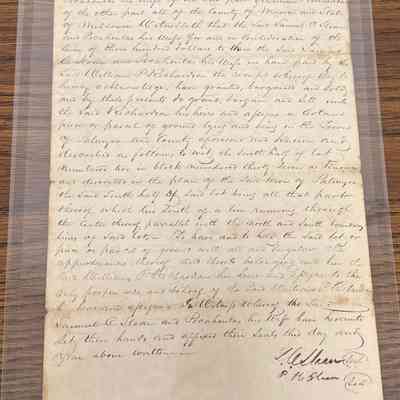 of the other part all of the County of Marion and State
of Missouri Witnesseth that the said Samuel C. Sloan
and Pocahontas his Wife for and in Consideration of the
Sum of three hundred Dollars to them the said Samuel
C. Sloan and Pocahontas his Wife in hand paid by the
said William P. Richardson the receipt whereof they do
hereby acknowledge, have granted, bargained and sold,
and by these presents do grant, bargain and sell unto
the said Richardson his heirs and assigns a Certain
piece or parcel of ground lying and being in the Town
of Palmyra and County aforesaid and known and
described as follows to wit, the South half of lot
numbered in block numbered thirty
and described on the plan of the said town of Palmyra
the said South half of said lot being all that part
thereof which lies South of a line running through
the Center thereof parallel with the North and South boundary
lines of said lot. To have and to hold the said lot or
piece or parcel of ground with all and singular the
appurtenances thereof and thereto belonging unto him the
said William P. Richardson his heirs and assigns to the
only proper use and behoof of the said William P. Richardson
his heirs and assigns. In Witness whereof the said
Samuel C. Sloan and Pocahontas his Wife have hereunto
Set their hands and affixed their Seals this day and
Year above written
S. C. Sloan Seal
P. Sloan Seal